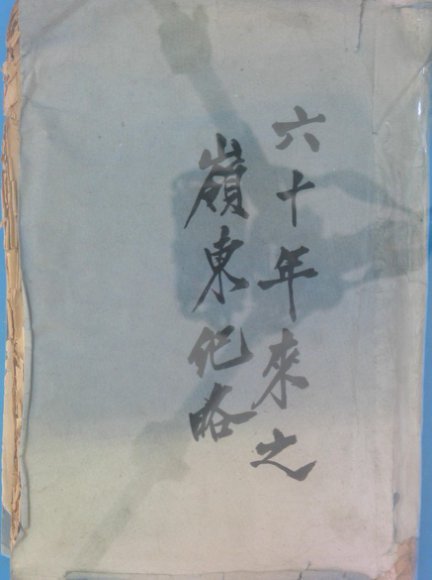 六十年來之
嶺東纪略